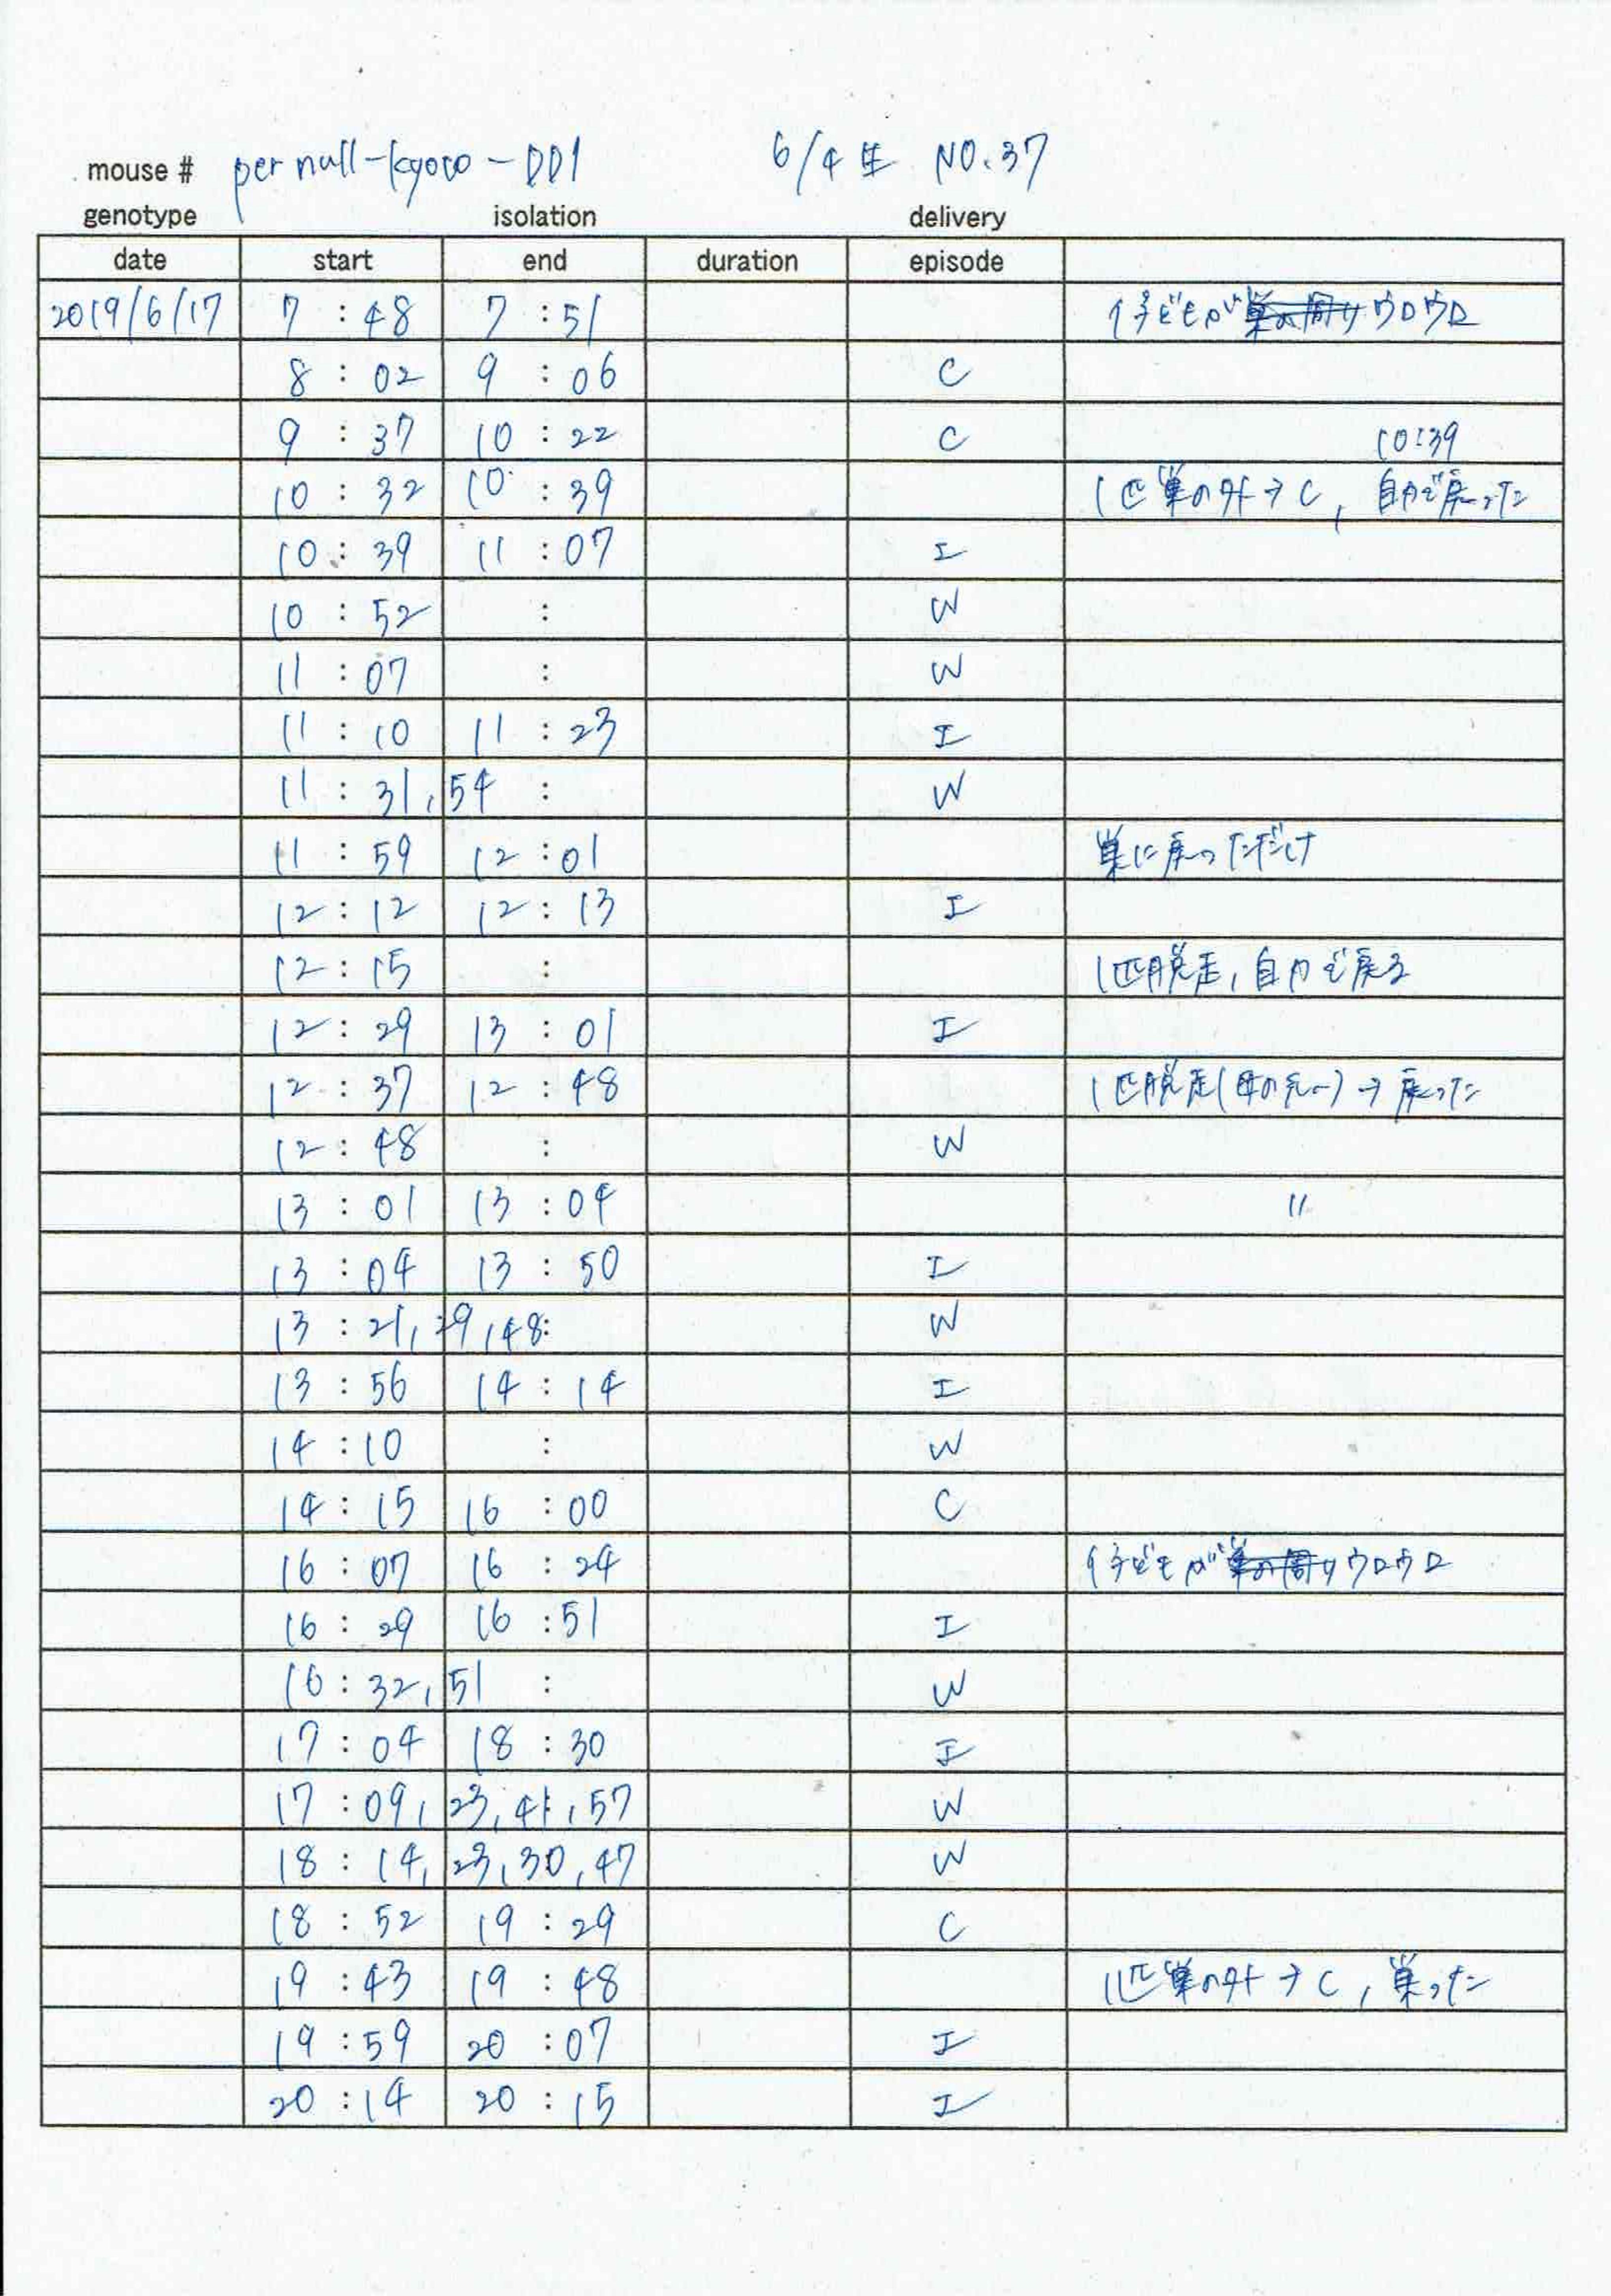 mouse # per null-kyoto-DD1 6/4生 NO.37
genotype isolation delivery
date start end duration episode
2019/6/17 7:48 7:51 子どもが ウロウロ
8:02 9:06 C
9:37 10:22 C 10:39
10:32 10:39 1匹巣の外→C, 自力で戻った
10:39 11:07 I
10:52 : W
11:07 : W
11:10 11:23 I
11:31,54 : W
11:59 12:01 巣に戻っただけ
12:12 12:13 I
12:15 : 1匹脱走,自力で戻る
12:29 13:01 I
12:37 12:48 1匹脱走(母の)→戻った
12:48 : W
13:01 13:04 〃
13:04 13:50 I
13:21,29,48: W
13:56 14:14 I
14:10 : W
14:15 16:00 C
16:07 16:24 子どもが ウロウロ
16:29 16:51 I
16:32,51 : W
17:04 18:30 I
17:09,23,41,57 W
18:14,23,30,47 W
18:52 19:29 C
19:43 19:48 1匹巣の外→C,
19:59 20:07 I
20:14 20:15 I